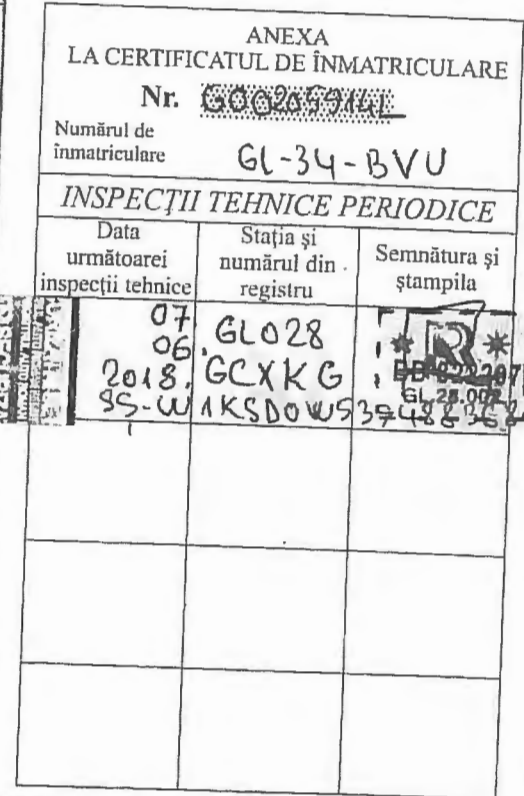 ANEXA
LA CERTIFICATUL DE ÎNMATRICULARE
Nr. G00205914L
Numărul de
înmatriculare GL-34-BVU
INSPECȚII TEHNICE PERIODICE
Data
următoarei
inspecții tehnice
Stația și
numărul din
registru
Semnătura și
ștampila
07
06
2018.
GL028
GCXKG
R
GL.28.002